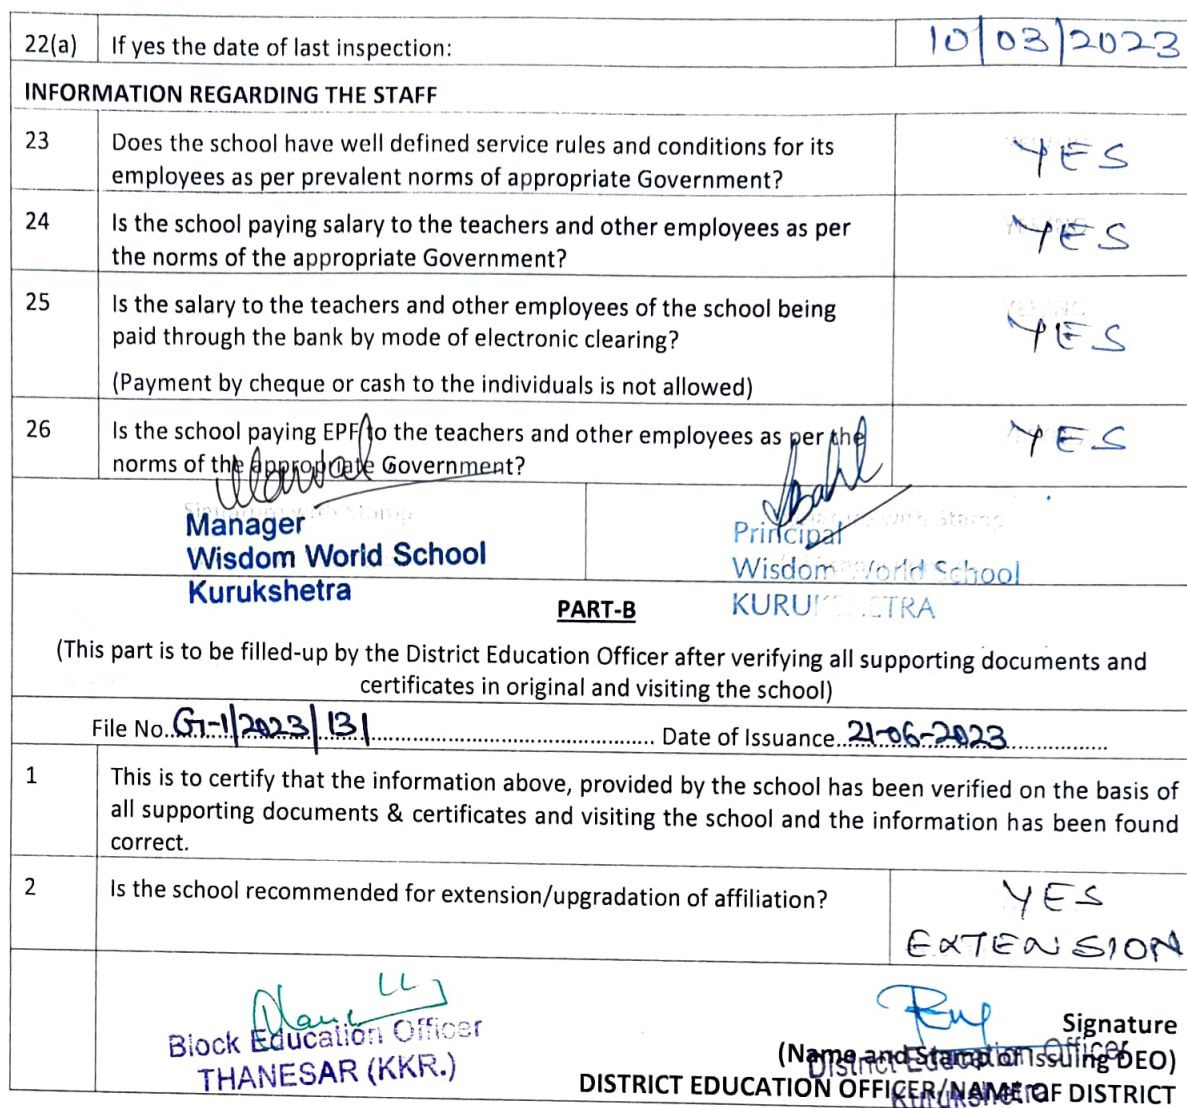 22(a) If yes the date of last inspection: 10/03/2023
INFORMATION REGARDING THE STAFF
23 Does the school have well defined service rules and conditions for its
employees as per prevalent norms of appropriate Government? YES
24 Is the school paying salary to the teachers and other employees as per
the norms of the appropriate Government? YES
25 Is the salary to the teachers and other employees of the school being
paid through the bank by mode of electronic clearing? YES
(Payment by cheque or cash to the individuals is not allowed)
26 Is the school paying EPF to the teachers and other employees as per the
norms of the appropriate Government? YES
Manager
Wisdom World School
Kurukshetra
Principal
Wisdom World School
KURUKSHETRA
PART-B
(This part is to be filled-up by the District Education Officer after verifying all supporting documents and
certificates in original and visiting the school)
File No. G-1/2023/131 Date of Issuance 21-06-2023
1 This is to certify that the information above, provided by the school has been verified on the basis of
all supporting documents & certificates and visiting the school and the information has been found
correct.
2 Is the school recommended for extension/upgradation of affiliation? YES
EXTENSION
Block Education Officer
THANESAR (KKR.)
Signature
(Name and Stamp of Issuing DEO)
District Education Officer
DISTRICT EDUCATION OFFICER/NAME OF DISTRICT
Kurukshetra